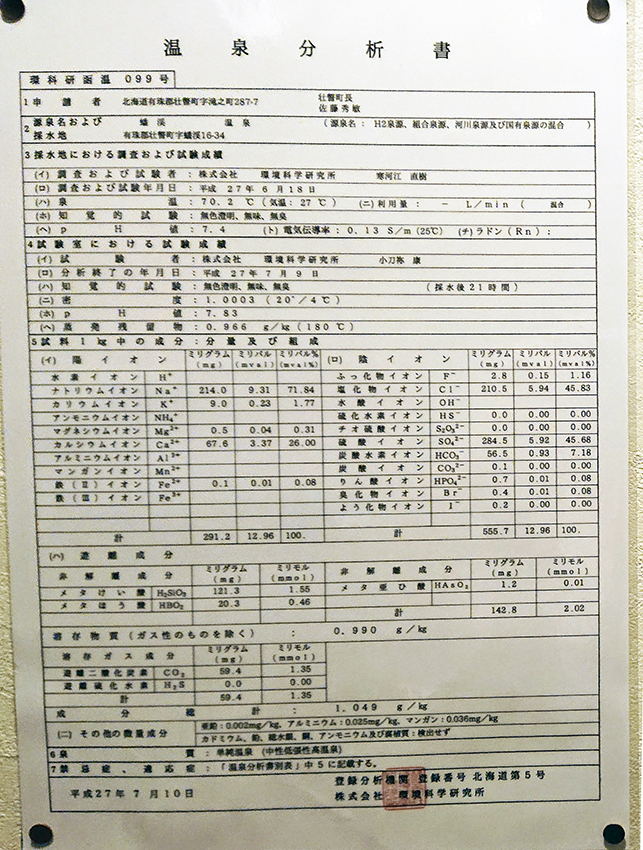 温泉分析書
環科研函温 099号
1 申請者 北海道有珠郡壮瞥町字滝之町287-7 壮瞥町長
佐藤 秀敏
2 源泉名および 蟠渓 温泉 (源泉名: H2泉源、組合泉源、河川泉源及び国有泉源の混合 )
採水地 有珠郡壮瞥町字蟠渓16-34
3 採水地における調査および試験成績
(イ) 調査および試験者 : 株式会社 環境科学研究所 寒河江 直樹
(ロ) 調査および試験年月日 : 平成 27年 6月18日
(ハ) 泉温 : 70.2 ℃ (気温: 27℃ ) (ニ) 利用量: － L/min ( 混合 )
(ホ) 知覚的試験 : 無色澄明、無味、無臭
(ヘ) pH値 : 7.4 (ト) 電気伝導率: 0.13 S/m (25℃) (チ) ラドン (Rn) :
4 試験室における試験成績
(イ) 試験者 : 株式会社 環境科学研究所 小刀祢 康
(ロ) 分析終了の年月日 : 平成 27年 7月 9日
(ハ) 知覚的試験 : 無色澄明、無味、無臭 ( 採水後21時間 )
(ニ) 密度 : 1.0003 (20°/4℃)
(ホ) pH値 : 7.83
(ヘ) 蒸発残留物 : 0.966 g/kg (180℃)
5 試料1kg中の成分:分量及び組成
(イ) 陽イオン ミリグラム(mg) ミリバル(mval) ミリバル%(mval%) (ロ) 陰イオン ミリグラム(mg) ミリバル(mval) ミリバル%(mval%)
水素イオン H⁺ ふっ化物イオン F⁻ 2.8 0.15 1.16
ナトリウムイオン Na⁺ 214.0 9.31 71.84 塩化物イオン Cl⁻ 210.5 5.94 45.83
カリウムイオン K⁺ 9.0 0.23 1.77 水酸イオン OH⁻
アンモニウムイオン NH₄⁺ 硫化水素イオン HS⁻ 0.0 0.00 0.00
マグネシウムイオン Mg²⁺ 0.5 0.04 0.31 チオ硫酸イオン S₂O₃²⁻ 0.0 0.00 0.00
カルシウムイオン Ca²⁺ 67.6 3.37 26.00 硫酸イオン SO₄²⁻ 284.5 5.92 45.68
アルミニウムイオン Al³⁺ 炭酸水素イオン HCO₃⁻ 56.5 0.93 7.18
マンガンイオン Mn²⁺ 炭酸イオン CO₃²⁻ 0.1 0.00 0.00
鉄(II)イオン Fe²⁺ 0.1 0.01 0.08 りん酸イオン HPO₄²⁻ 0.7 0.01 0.08
鉄(III)イオン Fe³⁺ 臭化物イオン Br⁻ 0.4 0.01 0.08
よう化物イオン I⁻ 0.2 0.00 0.00
計 291.2 12.96 100. 計 555.7 12.96 100.
(ハ) 遊離成分
非解離成分 ミリグラム(mg) ミリモル(mmol) 非解離成分 ミリグラム(mg) ミリモル(mmol)
メタけい酸 H₂SiO₃ 121.3 1.55 メタ亜ひ酸 HAsO₂ 1.2 0.01
メタほう酸 HBO₂ 20.3 0.46 計 142.8 2.02
溶存物質(ガス性のものを除く) : 0.990 g/kg
溶存ガス成分 ミリグラム(mg) ミリモル(mmol)
遊離二酸化炭素 CO₂ 59.4 1.35
遊離硫化水素 H₂S 0.0 0.00
計 59.4 1.35
成分総計 : 1.049 g/kg
(ニ) その他の微量成分 亜鉛:0.002mg/kg、アルミニウム:0.025mg/kg、マンガン:0.036mg/kg
カドミウム、鉛、総水銀、銅、アンモニウム及び腐植質:検出せず
6 泉質 : 単純温泉 (中性低張性高温泉)
7 禁忌症、適応症 : 「温泉分析書別表」中5に記載する。
平成27年 7月10日 登録分析機関 登録番号 北海道第5号
株式会社 環境科学研究所